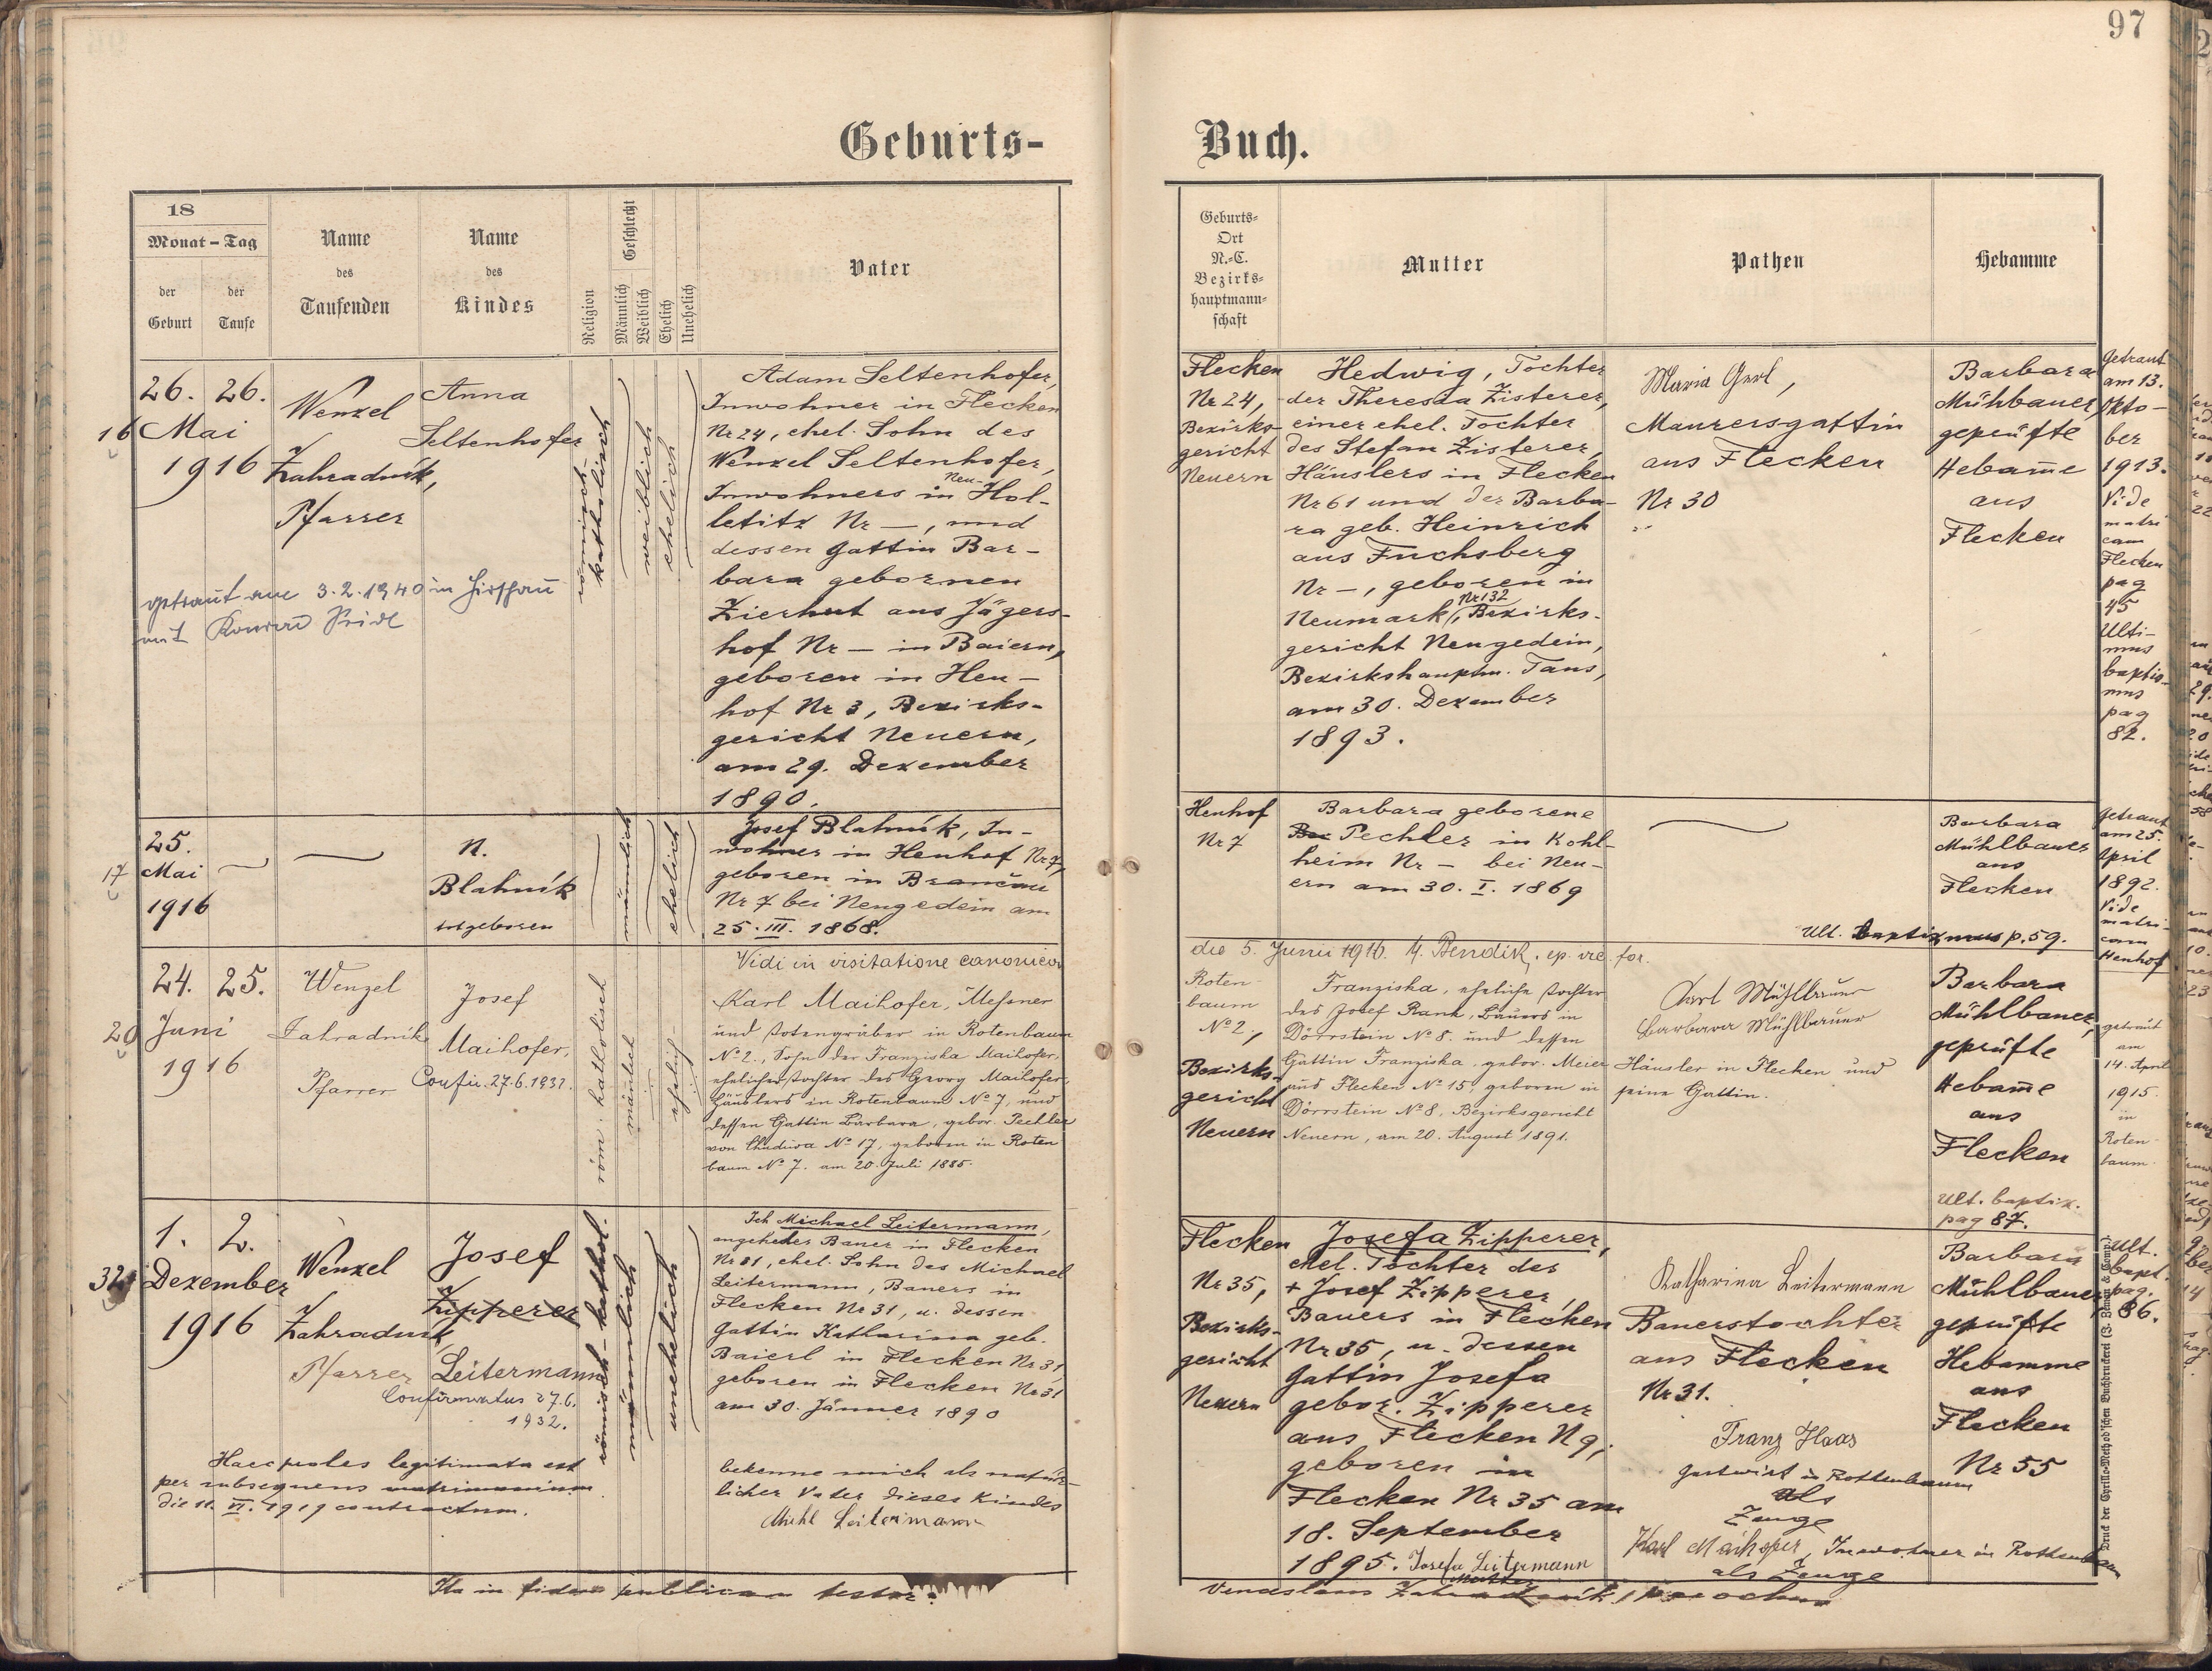 97
Geburts-
Buch.
18
Monat – Tag
der
Geburt
der
Taufe
Name
des
Taufenden
Name
des
Kindes
Religion
Geschlecht
Männlich
Weiblich
Ehelich
Unehelich
Vater
Geburts-
Ort
N.-C.
Bezirks-
hauptmann-
schaft
Mutter
Pathen
Hebamme
16
26. 26.
Mai
1916
Wenzel
Zahradník,
Pfarrer
Anna
Seltenhofer
römisch-
katholisch
weiblich
ehelich
Adam Seltenhofer,
Inwohner in Flecken
Nr 24, ehel. Sohn des
Wenzel Seltenhofer,
Neu-
Inwohners in Hol-
letitz Nr —, und
dessen Gattin Bar-
bara gebornen
Zierhut aus Jägers-
hof Nr — in Baiern,
geboren in Hen-
hof Nr 3, Bezirks-
gericht Neuern,
am 29. Dezember
1890.
getraut am 3.2.1940 in Hirschau
mit Konrad
Flecken
Nr 24,
Bezirks-
gericht
Neuern
Hedwig, Tochter
der Theresia Zisterer,
einer ehel. Tochter
des Stefan Zisterer,
Häuslers in Flecken
Nr 61 und der Barba-
ra geb. Heinrich
aus Fuchsberg
Nr —, geboren in
Nr 132
Neumark, Bezirks-
gericht Neugedein,
Bezirkshauptm. Taus,
am 30. Dezember
1893.
Maria Gerl,
Maurersgattin
aus Flecken
Nr 30
Barbara
Mühlbauer,
geprüfte
Hebam̄e
aus
Flecken
Getraut
am 13.
Okto-
ber
1913.
Vide
matri
cam
Flecken
pag
45
Ulti-
mus
baptis-
mus
pag
82.
17
25.
Mai
1916
N.
Blahník
totgeboren
männlich
ehelich
Josef Blahník, In-
wohner in Henhof Nr 7,
geboren in Brančau
Nr 7 bei Neugedein am
25. III. 1868.
Henhof
Nr 7
Barbara geborene
Pechler in Kohl-
heim Nr — bei Neu-
ern am 30. I. 1869
Barbara
Mühlbauer
aus
Flecken
Ult. baptizmus p. 59.
Getraut
am 25.
April
1892.
Vide
matri-
cam
Henhof
Vidi in visitatione canonica
die 5. Junii 1916. Bendik, ep. vic. for.
20
24. 25.
Juni
1916
Wenzel
Zahradník
Pfarrer
Josef
Maihofer,
Confir. 27.6.1932.
röm: katholisch
mänlich
ehelich
Karl Maihofer, Meßner
und Totengräber in Rotenbaum
No 2., Sohn der Franziska Maihofer,
ehelicher Tochter des Georg Maihofer,
Häuslers in Rotenbaum No 7, und
dessen Gattin Barbara, gebor. Pechler
von Chudiwa No 17, geboren in Roten
baum No 7. am 20. Juli 1885.
Roten-
baum
No 2.,
Bezirks-
gericht
Neuern
Franziska, eheliche Tochter
des Josef Rank, Bauers in
Dörrstein No 8. und dessen
Gattin Franziska, gebor. Meier
aus Flecken No 15, geboren in
Dörrstein No 8. Bezirksgericht
Neuern, am 20. August 1891.
Karl Mühlbauer
Barbara Mühlbauer
Häusler in Flecken und
seine Gattin.
Barbara
Mühlbauer,
geprüfte
Hebam̄e
aus
Flecken
Ult. baptiz.
pag 87.
getraut
am
14. April
1915.
in
Roten-
baum.
32
1. 2.
Dezember
1916
Wenzel
Zahradník,
Pfarrer
Josef
Zipperer
Leitermann
Confirmatus 27.6.
1932.
römisch-kathol.
männlich
unehelich
Ich Michael Leitermann,
angehender Bauer in Flecken
Nr 31, ehel. Sohn des Michael
Leitermann, Bauers in
Flecken Nr 31, u. dessen
Gattin Katharina geb.
Baierl in Flecken Nr 31,
geboren in Flecken Nr 31
am 30. Jänner 1890
bekenne mich als natür-
licher Vater dieses Kindes
Michl Leitermann
Haec proles legitimata est
per subsequens matrimonium
die 11. VI. 1919 contractum.
Flecken
Nr 35,
Bezirks-
gericht
Neuern
Josefa Zipperer,
ehel. Tochter des
+ Josef Zipperer,
Bauers in Flecken
Nr 35, u. dessen
Gattin Josefa
gebor. Zipperer
aus Flecken N 9,
geboren in
Flecken Nr 35 am
18. September
1895. Josefa Leitermann
Mutter
Katharina Leitermann
Bauerstochter
aus Flecken
Nr 31.
Franz Haas
Gastwirt in Rottenbaum
als
Zeuge
Karl Maihofer, Inwohner in Rottenbaum
als Zeuge
Barbara
Mühlbauer,
geprüfte
Hebamme
aus
Flecken
Nr 55
Ult.
bapt.
pag.
86.
Druck der Cyrillo-Method'schen Buchdruckerei (J. Zeman & Comp.)
Ita in fidem publicam testor:
Venceslaus Zahradník, parochus